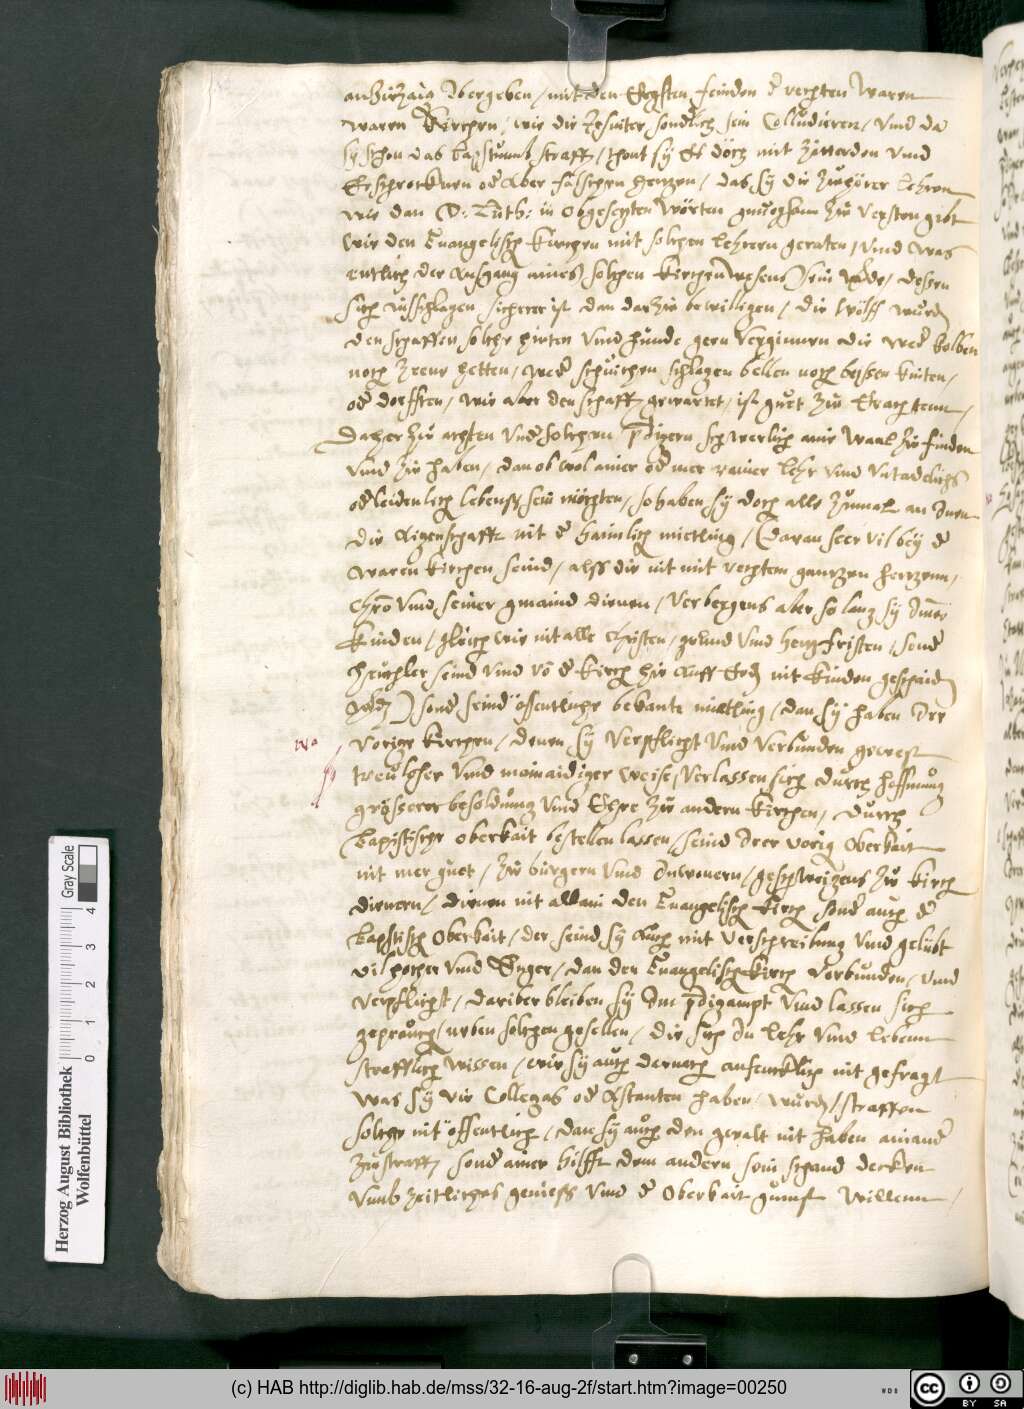 waren Kirchen / wie die Jesuiter sonderlich sein Colludieren / vnd da
sy schon das Bapstumb straffen / thont sy Es doch mit zitterden vnd
Erschrocknen oder Aber falschen hertzen / das sy die Zuhörer lehren
wie dan D: Luth: in obgesezten wörten gnugsam zu versten gibt
wie den Euangelisch Kirchen mit solchen lehrern geraten / vnd was
entlich der Ausgang aines solchen Kirchenwesens sein werde / dessen
sich zuschlagen sicherer ist dan darzu bewilligen / die Wölff wurden
den schaffen solche hirten vnd hunde gern vergünnen die weder kolben
noch Zeene hetten / weder schreichen schlagen bellen noch beyssen kinten /
oder dorfften / wie aber den schaffen gewartet / ist guet zu Erachtenn /
Daher zu achten vnder solchen predigern schwerlich ain waal zu finden
vnd zu haben / dan ob wol ainer oder mer rainer lehr vnd vntadelichs
oder leidenlich lebenß sein möchten / so haben sy doch alle zumal an Inen
die Aigenschafft nit der haimlich mietling / (daran seer vil bey der
waren kirchen seind / alß die nit mit rechtem gantzen hertzenn /
christo vnd seiner gmaind dienen / verbergens aber so lang sy Immer
kinden / gleich wie nit alle christen / grund vnd hertzchristen / sonder
heuchler seind vnd von der kirch hie auff Erden nit kinden geschaiden
werden) sonder seind öffentliche bekante mietling / dan sy haben Ire
vorige kirchen / denen sy verpflicht vnd verbunden gewest
trewloser vnd mainaidiger weise / verlassen sich durch hoffnung
grösserer besoldung vnd Ehre zu andern kirchen / durch
Bapistische oberkait bestellen lassen / seind Irer vorig oberkait
nit mer guet / zu burgern vnd Inwonern / geschweigens zu kirch
dienern / dienen nit allain den Euangelisch kirch sonder auch der
Bapstisch oberkait / der seind sy Auch mit verschreibung vnd gelübt
vil hocher vnd Enger / dan den Euangelisch kirch verbunden / vnd
verpflicht / dariber bleiben sy Im predigampt vnd lassen sich
neben solchen gesellen / die sich In lehr vnd lebenn
strafflich wissen / wie sy auch dernach anfencklich nit gefragt
was sy vir Collegas oder Astanten haben wurden / straffen
solche nit öffentlich / dan sy auch den gwalt nit haben ainander
zustraffen sonder ainer hilfft dem andern sein schand decken
vmb zeitliches geniess vnd der oberkait gunst willenn /
Gray Scale
4 3 2 1 0
Herzog August Bibliothek
Wolfenbüttel
(c) HAB http://diglib.hab.de/mss/32-16-aug-2f/start.htm?image=00250
WDB
cc BY SA